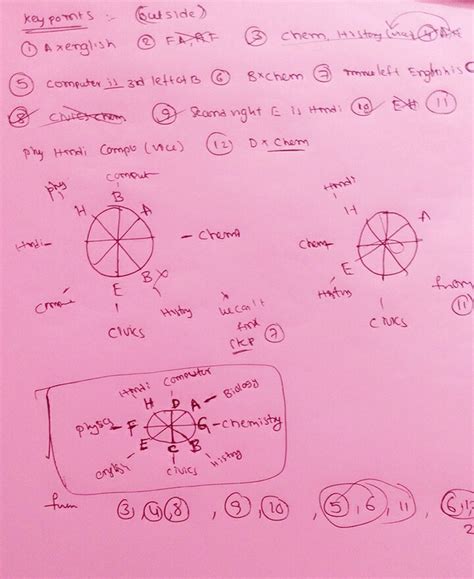 Key points :- (outside)
① A x english ② F A, H F ③ Chem, History (Vice) ④ A x H
⑤ Computer is 3rd left of B ⑥ B x chem ⑦ left English is C
⑧ Civics x chem ⑨ Second right E is Hindi ⑩ E x H ⑪
phy Hindi Compu (vice) ⑫ D x Chem
phy Comput Hindi
B H
H A A
Hindi - - Chem Chem
B x E
E Histry from
Histry x we can't ⑪
Civics find Civics
SKIP ⑦
Hindi Computer
H D A - Biology
F - G - chemistry
E C B
english civics Histry
from ③, ④, ⑧ , ⑨, ⑩ , ⑤, 6, 11 , 6, 12